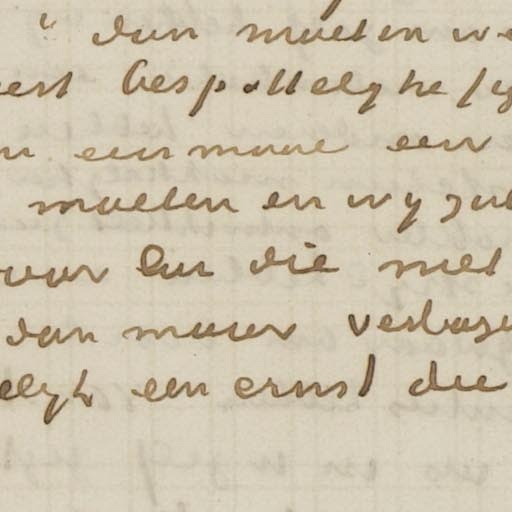 " dan moeten we
eest bespottelyke fig
n eenmaal een
moeten en wy zul
voor en die met
dan maar verbaze
elyk een ernst die